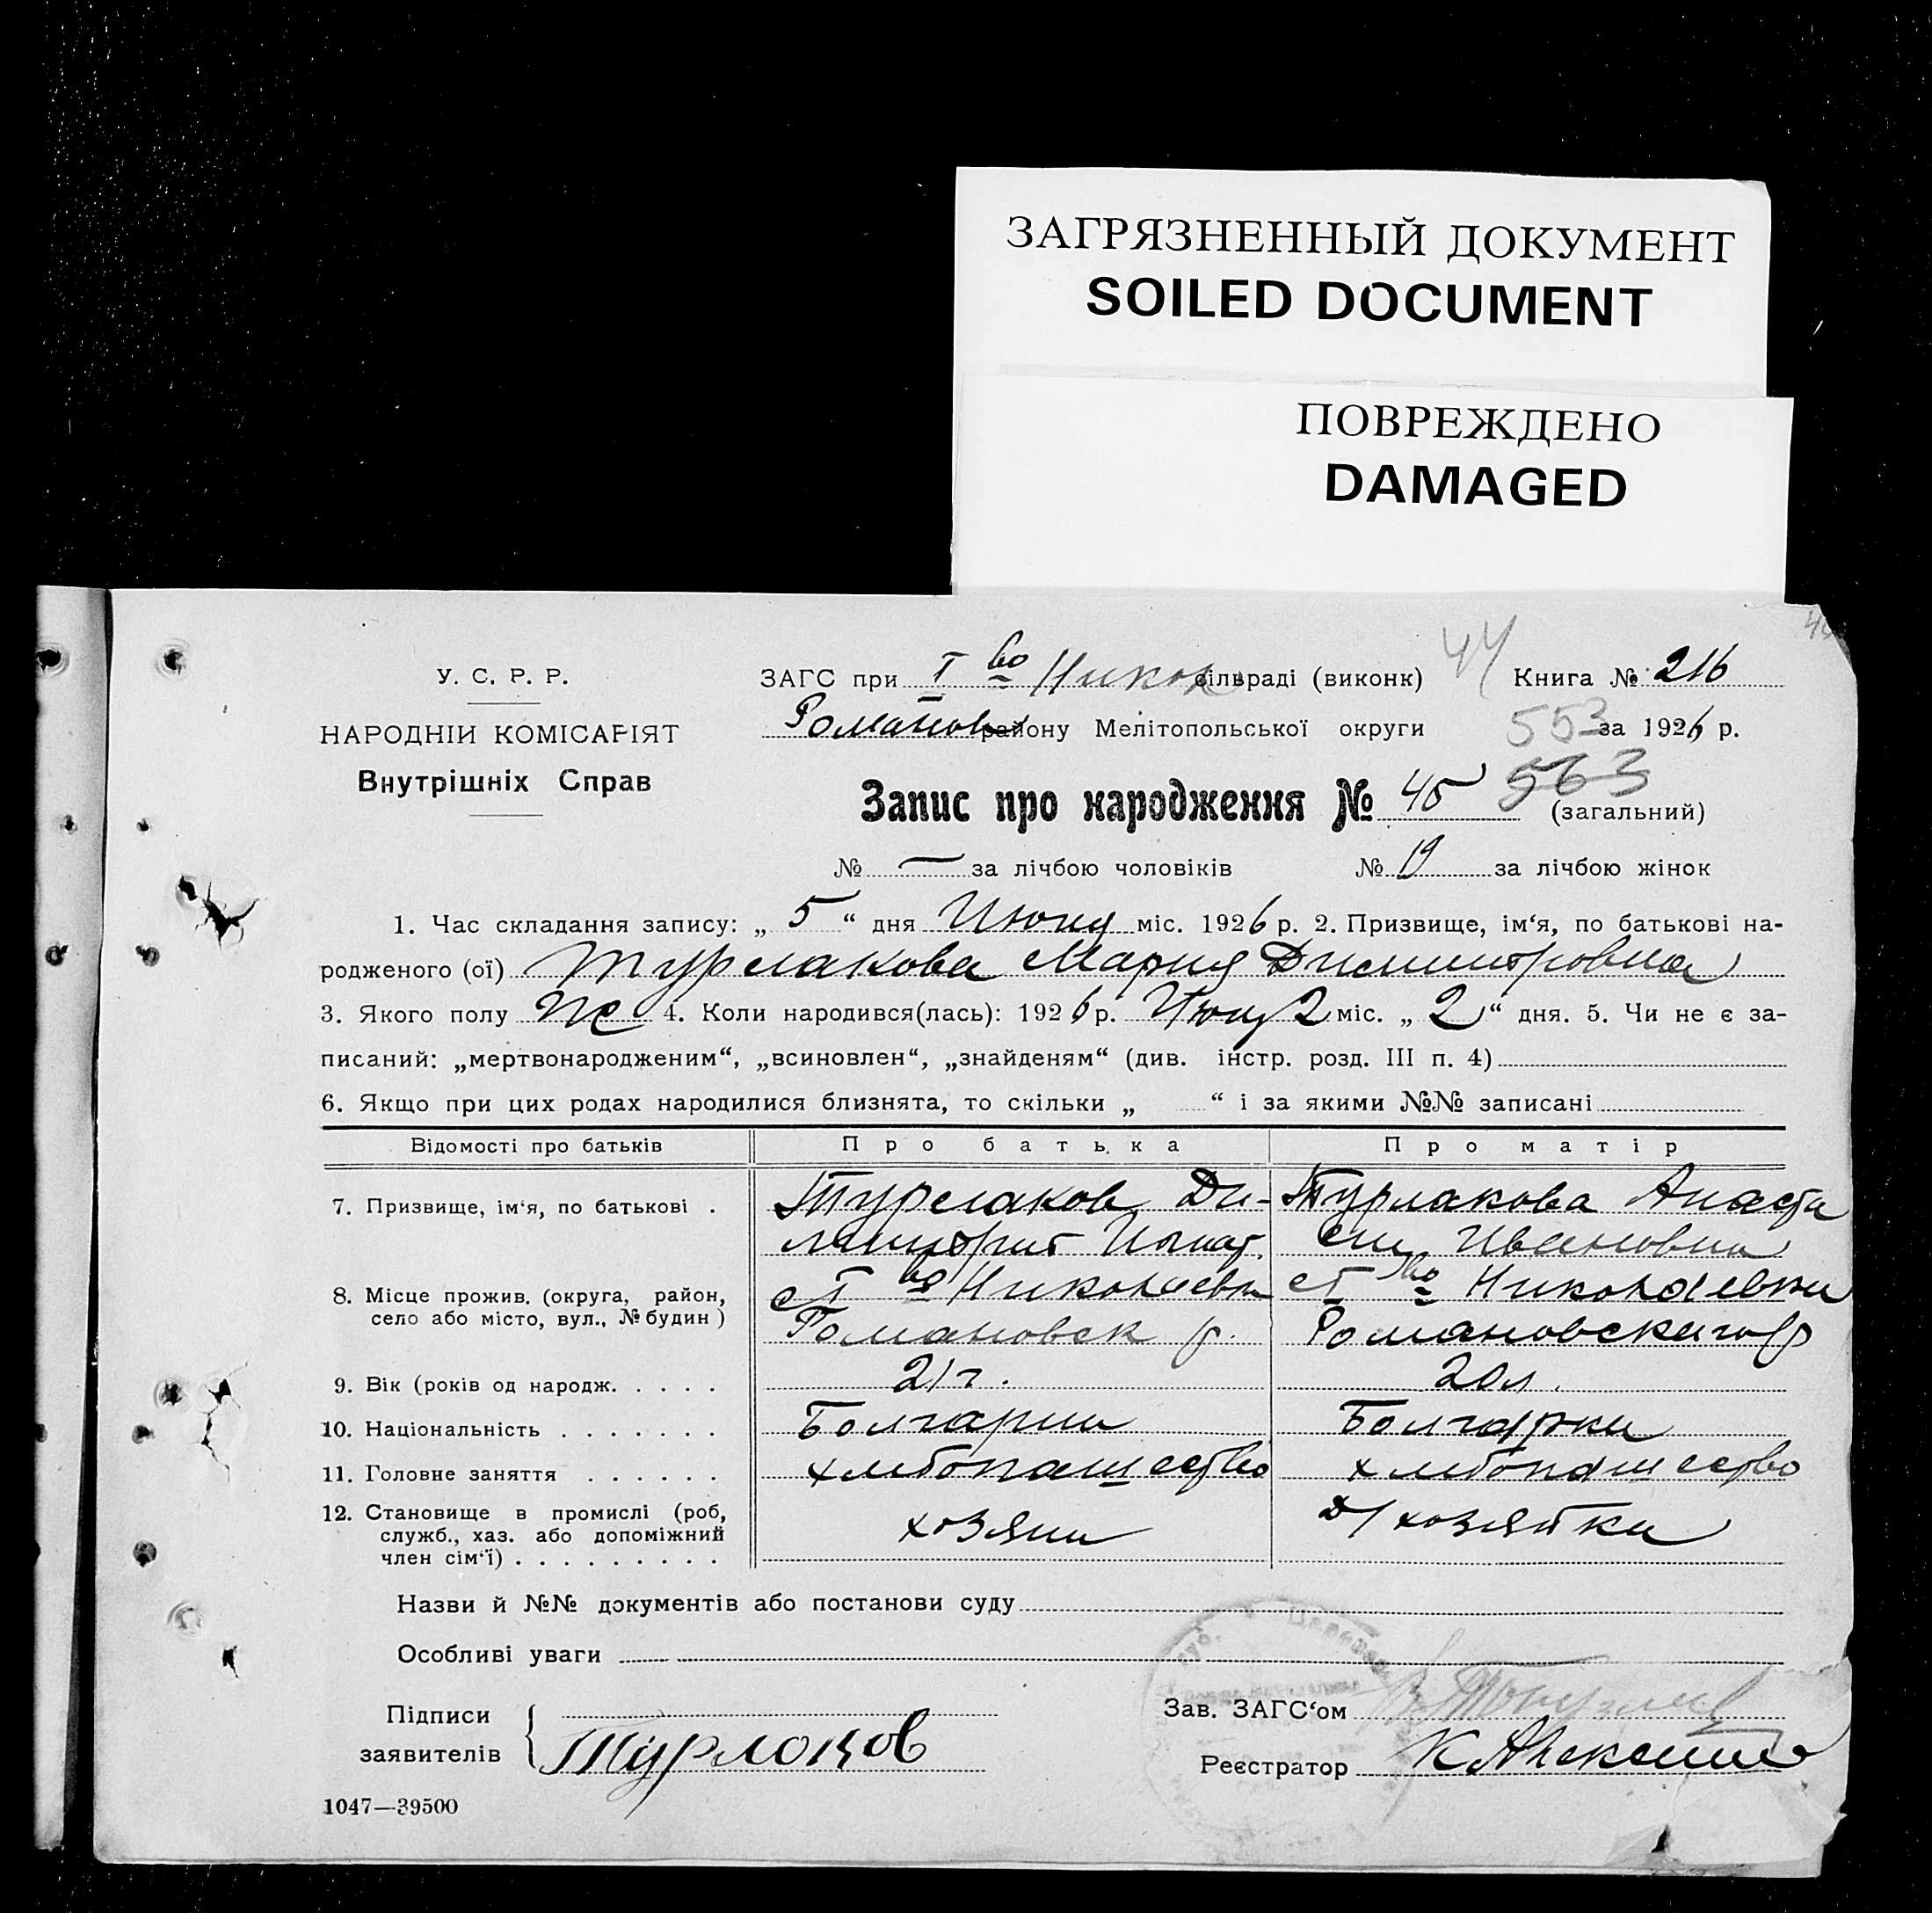 ЗАГРЯЗНЕННЫЙ ДОКУМЕНТ
SOILED DOCUMENT
ПОВРЕЖДЕНО
DAMAGED
44
У. С. Р. Р.
НАРОДНІЙ КОМІСАРІЯТ
Внутрішніх Справ
ЗАГС при I во Никол сільраді (виконк) Книга № 216
Романов району Мелітопольської округи 553 за 1926 р.
Запис про народження № 45 563 (загальний)
№ — за лічбою чоловіків № 19 за лічбою жінок
1. Час складання запису: „ 5 “ дня Июня міс. 1926 р. 2. Призвище, ім‘я, по батькові на-
родженого (ої) Турлакова Мария Дмитровна
3. Якого полу ж 4. Коли народився(лась): 1926 р. Июня 2 міс. „ 2 “ дня. 5. Чи не є за-
писаний: „мертвонародженим“, „всиновлен“, „знайденям“ (див. інстр. розд. III п. 4)
6. Якщо при цих родах народилися близнята, то скільки „ “ і за якими №№ записані
Відомості про батьків Про батька Про матір
7. Призвище, ім‘я, по батькові . Турлаков Ди- Турлакова Анаста
митрий Игнат. сия Ивановна
8. Місце прожив. (округа, район, с I во Николаевка с I во Николаевка
село або місто, вул., № будин ) Романовск р. Романовскаго р
9. Вік (років од народж. . . . . 21 г. 20 л.
10. Національність . . . . . . . Болгарин Болгарка
11. Головне заняття . . . . . . хлебопашество хлебопашество
12. Становище в промислі (роб,
служб., хаз. або допоміжний хозяин д/хозяйка
член сім‘ї) . . . . . . . . .
Назви й №№ документів або постанови суду
Особливі уваги
Підписи Зав. ЗАГС‘ом
заявителів Турлаков Реєстратор
1047—39500